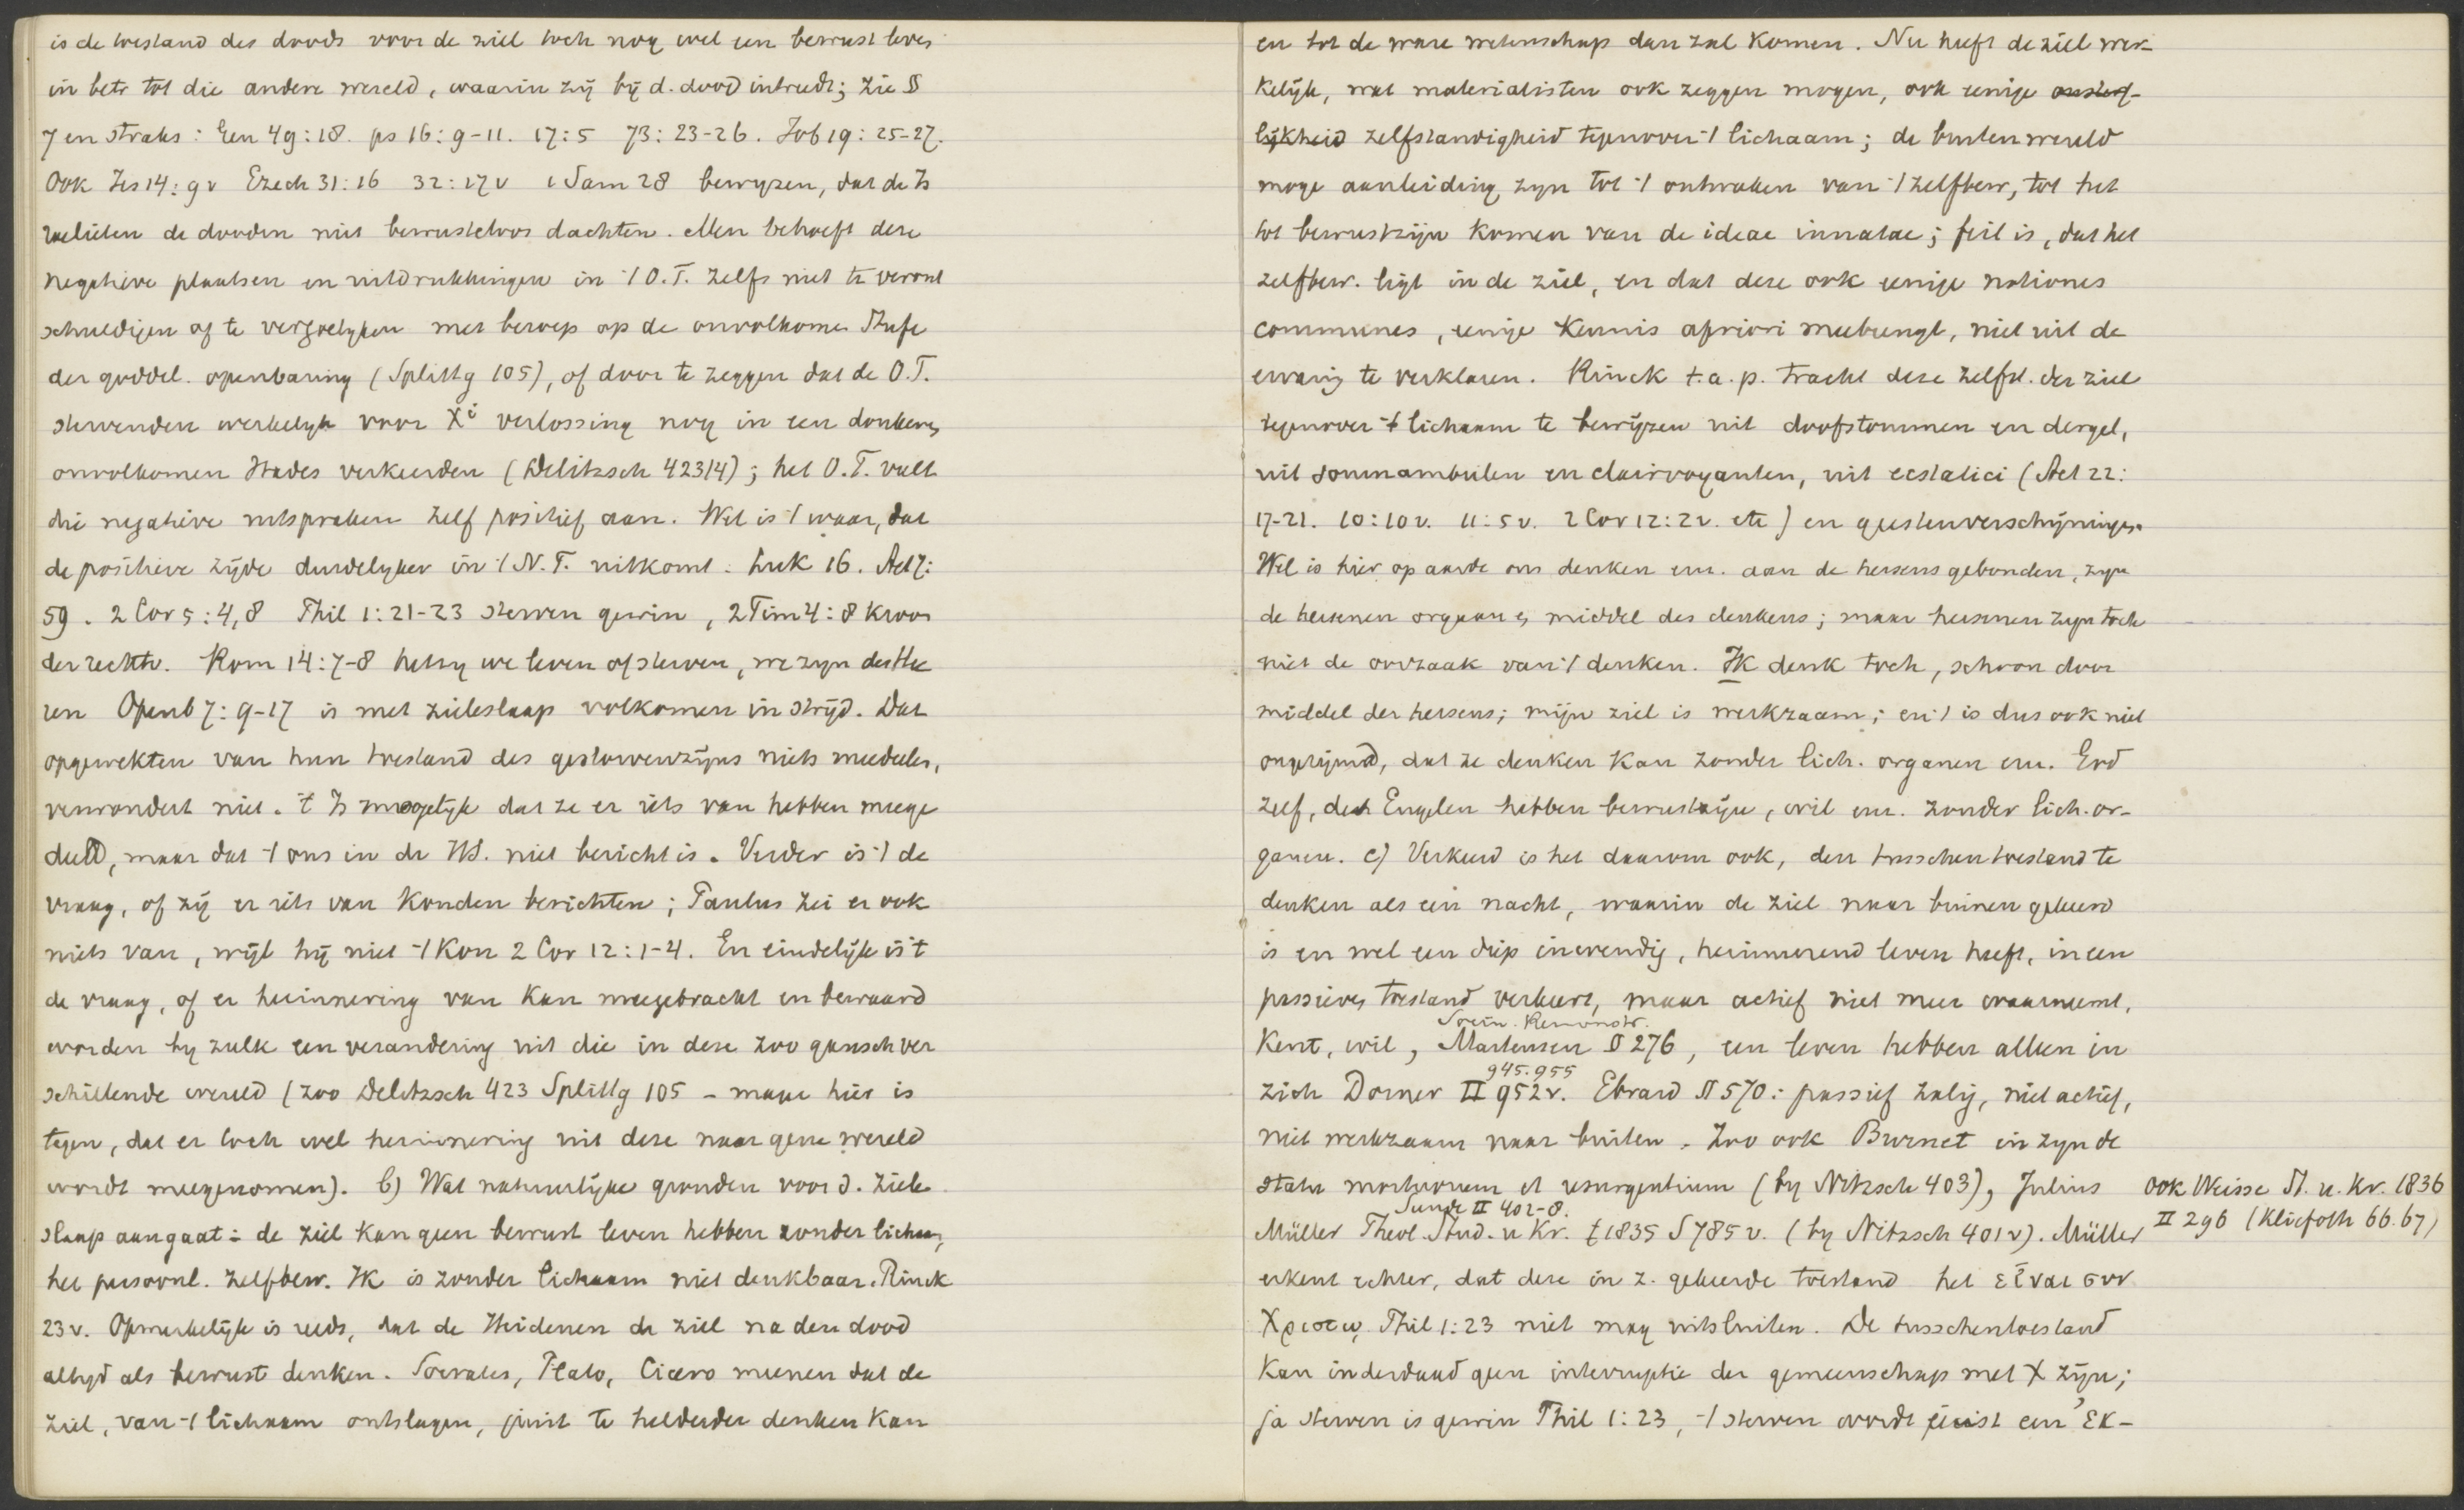 is de toestand des doods voor de ziel toch nog wel een bewust leven
in betr tot die andere wereld, waarin zij bij d. dood intreedt; zie §
7 en straks: Gen 49:18. ps 16:9-11. 17:5 73:23-26. Job 19:25-27.
Ook Jes 14:9v Ezech 31:16 32:17v 1 Sam 28 bewyzen, dat de Is
raelieten de dooden niet bewusteloos dachten. Men behoeft deze
negatieve plaatsen en uitdrukkingen in 't O.T. zelfs niet te veront
schuldigen of te vergoelyken met beroep op de onvolkomen Stufe
der goddel. openbaring (Splittg 105), of door te zeggen dat de O.T.
stervenden werkelyk voor Xi verlossing nog in een donkeren,
onvolkomen Hades verkeerden (Delitzsch 423/4); het O.T. vult
die negatieve uitspraken zelf positief aan. Wel is 't waar, dat
de positieve zijde duidelyker in 't N.T. uitkomt: Luk 16. Act 7:
59. 2 Cor 5:4,8 Thil 1:21-23 sterven gewin, 2 Tim 4:8 kroon
der rechtv. Rom 14:7-8 hetzy we leven of sterven, we zyn des Hee
ren Openb 7:9-17 is met zieleslaap volkomen in strijd. Dat
opgewekten van hun toestand des gestorvenzijns niets meedeelen,
verwondert niet. 't Is mogelijk dat ze er iets van hebben meege
deeld, maar dat 't ons in de HS. niet bericht is. Verder is 't de
vraag, of zij er iets van konden berichten; Paulus zei er ook
niets van, wijl hij niet 't kon 2 Cor 12:1-4. En eindelijk is 't
de vraag, of er herinnering van kan meegebracht en bewaard
worden by zulk een verandering uit die in deze zoo gansch ver
schillende wereld (zoo Delitzsch 423 Splittg 105 - maar hier is
tegen, dat er toch wel herinnering uit deze naar gene wereld
wordt meegenomen). b) Wat natuurlyke gronden voor d. ziele
slaap aangaat: de ziel kan geen bewust leven hebben zonder lichaam,
het persoonl. zelfbew. Ik is zonder lichaam niet denkbaar. Rinck
23v. Opmerkelijk is reeds, dat de Heidenen de ziel na den dood
altyd als bewust denken. Socrates, Plato, Cicero meenen dat de
ziel, van 't lichaam ontslagen, juist te helderder denken kan
en tot de ware wetenschap dan zal komen. Nu heeft de ziel wer-
kelijk, wat materialisten ook zeggen mogen, ook eenige
lijkheid zelfstandigheid tegenover 't lichaam; de buitenwereld
moge aanleiding zyn tot 't ontwaken van 't zelfbew, tot het
tot bewustzijn komen van de ideae innatae; feit is, dat het
zelfbew. ligt in de ziel, en dat deze ook eenige notiones
communes, eenige kennis apriori meebrengt, niet uit de
ervaring te verklaren. Rinck t.a.p. tracht deze zelfst. der ziel
tegenover 't lichaam te bewijzen uit doofstommen en dergel,
uit somnambulen en clairvoyanten, uit ecstatici (Act 22:
17-21. 10:10v. 11:5v. 2 Cor 12:2v. etc) en geestenverschijningen.
Wel is hier op aarde ons denken enz. aan de hersens gebonden, zyn
de hersenen orgaan, middel des denkens; maar hersenen zyn toch
niet de oorzaak van 't denken. Ik denk toch, schoon door
middel der hersens; mijn ziel is werkzaam; en 't is dus ook niet
ongerijmd, dat ze denken kan zonder lich. organen enz. God
zelf, de Engelen hebben bewustzijn, wil enz. zonder lich. or-
ganen. c) Verkeerd is het daarom ook, den tusschentoestand te
denken als een nacht, waarin de ziel naar binnen gekeerd
is en wel een diep inwendig, herinnerend leven heeft, in een
passieven toestand verkeert, maar actief niet meer waarneemt,
Socin. Remonstr.
kent, wil, Martensen § 276, een leven hebben alleen in
945.955
zich Dorner II 952v. Ebrard § 570: passief zalig, niet actief,
niet werkzaam naar buiten. Zoo ook Burnet in zyn de
statu mortuorum et resurgentium (by Nitzsch 403), Julius
Sünde II 402-8.
Müller Theol. Stud. u Kr. 1835 S 785 v. (by Nitzsch 401v). Müller
ook Weisse St. u. Kr. 1836
II 296 (Kliefoth 66.67)
erkent echter, dat deze in z. gekeerde toestand het εἶναι συν
Χριστῳ Thil 1:23 niet mag uitsluiten. De tusschentoestand
kan inderdaad geen interruptie der gemeenschap met X zijn;
ja sterven is gewin Thil 1:23, 't sterven wordt juist een ἐκ-